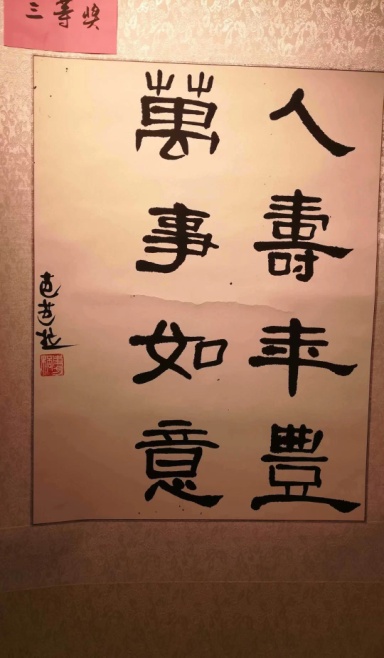 三等奖
人壽年豐
萬事如意